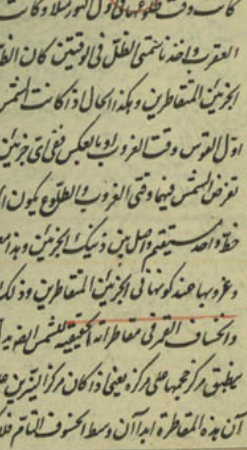 كانت وقت طلوعها فى اول الثور مثلا وكانت
العقرب واخذنا سمتى الظل فى الوقتين كان الظ
الجزئين المتقاطرين وهكذا الحال اذا كانت الشمس
اول القوس وقت الغروب او بالعكس ففى اى جزئين
تفرض الشمس فيهما وقتى الغروب والطلوع يكون ا
خط واحد مستقيم واصل بين ذينك الجزئين وهذا
وغروبها عند كونها فى الجزئين المتقاطرين وذلك
وانخساف القمر فى مقاطراته الحقيقية للشمس
ينطبق مركز حجمها على مركزه يعنى اذا كان مركز النيرين عل
آن هذه المقاطرة ابدا آن وسط الخسوف التام فلا